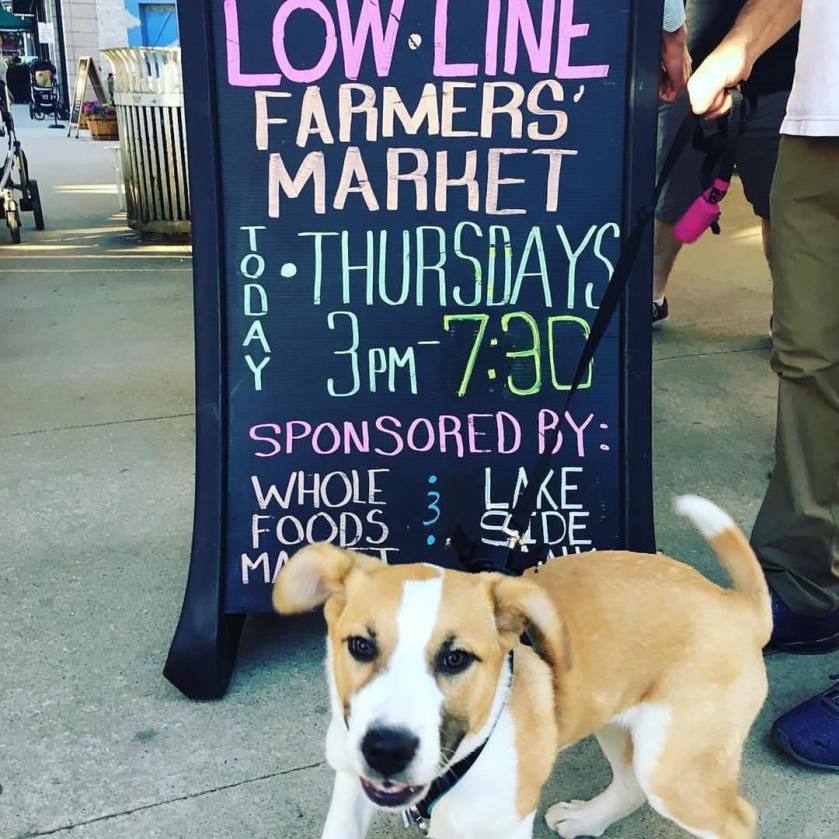 LOW•LINE
FARMERS'
MARKET
TODAY
• THURSDAYS
3PM - 7:30
SPONSORED BY:
WHOLE
FOODS
&
LAKE
SIDE